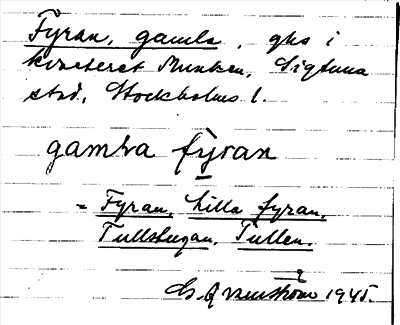 Fyran, gamla, gks i
kvarteret Munken, Sigtuna
stad, Stockholms l.
gambla fyran
= Fyran, Lilla fyran,
Tullstugan, Tullen.
1945.